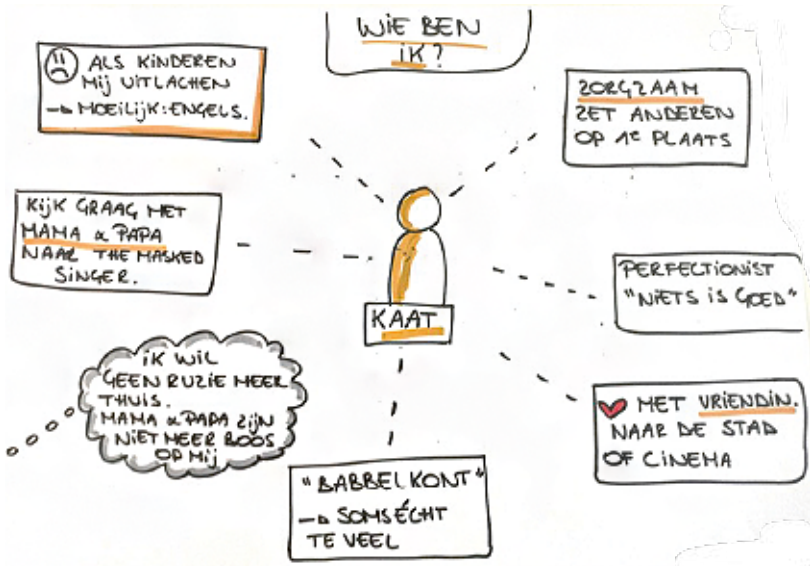 WIE BEN
IK?
ALS KINDEREN
MIJ UITLACHEN
→ MOEILIJK: ENGELS.
ZORGZAAM
ZET ANDEREN
OP 1e PLAATS
KIJK GRAAG MET
MAMA & PAPA
NAAR THE MASKED
SINGER.
PERFECTIONIST
"NIETS IS GOED"
KAAT
IK WIL
GEEN RUZIE MEER
THUIS.
MAMA & PAPA ZIJN
NIET MEER BOOS
OP MIJ
❤ MET VRIENDIN.
NAAR DE STAD
OF CINEMA
"BABBELKONT"
→ SOMS ÉCHT
TE VEEL